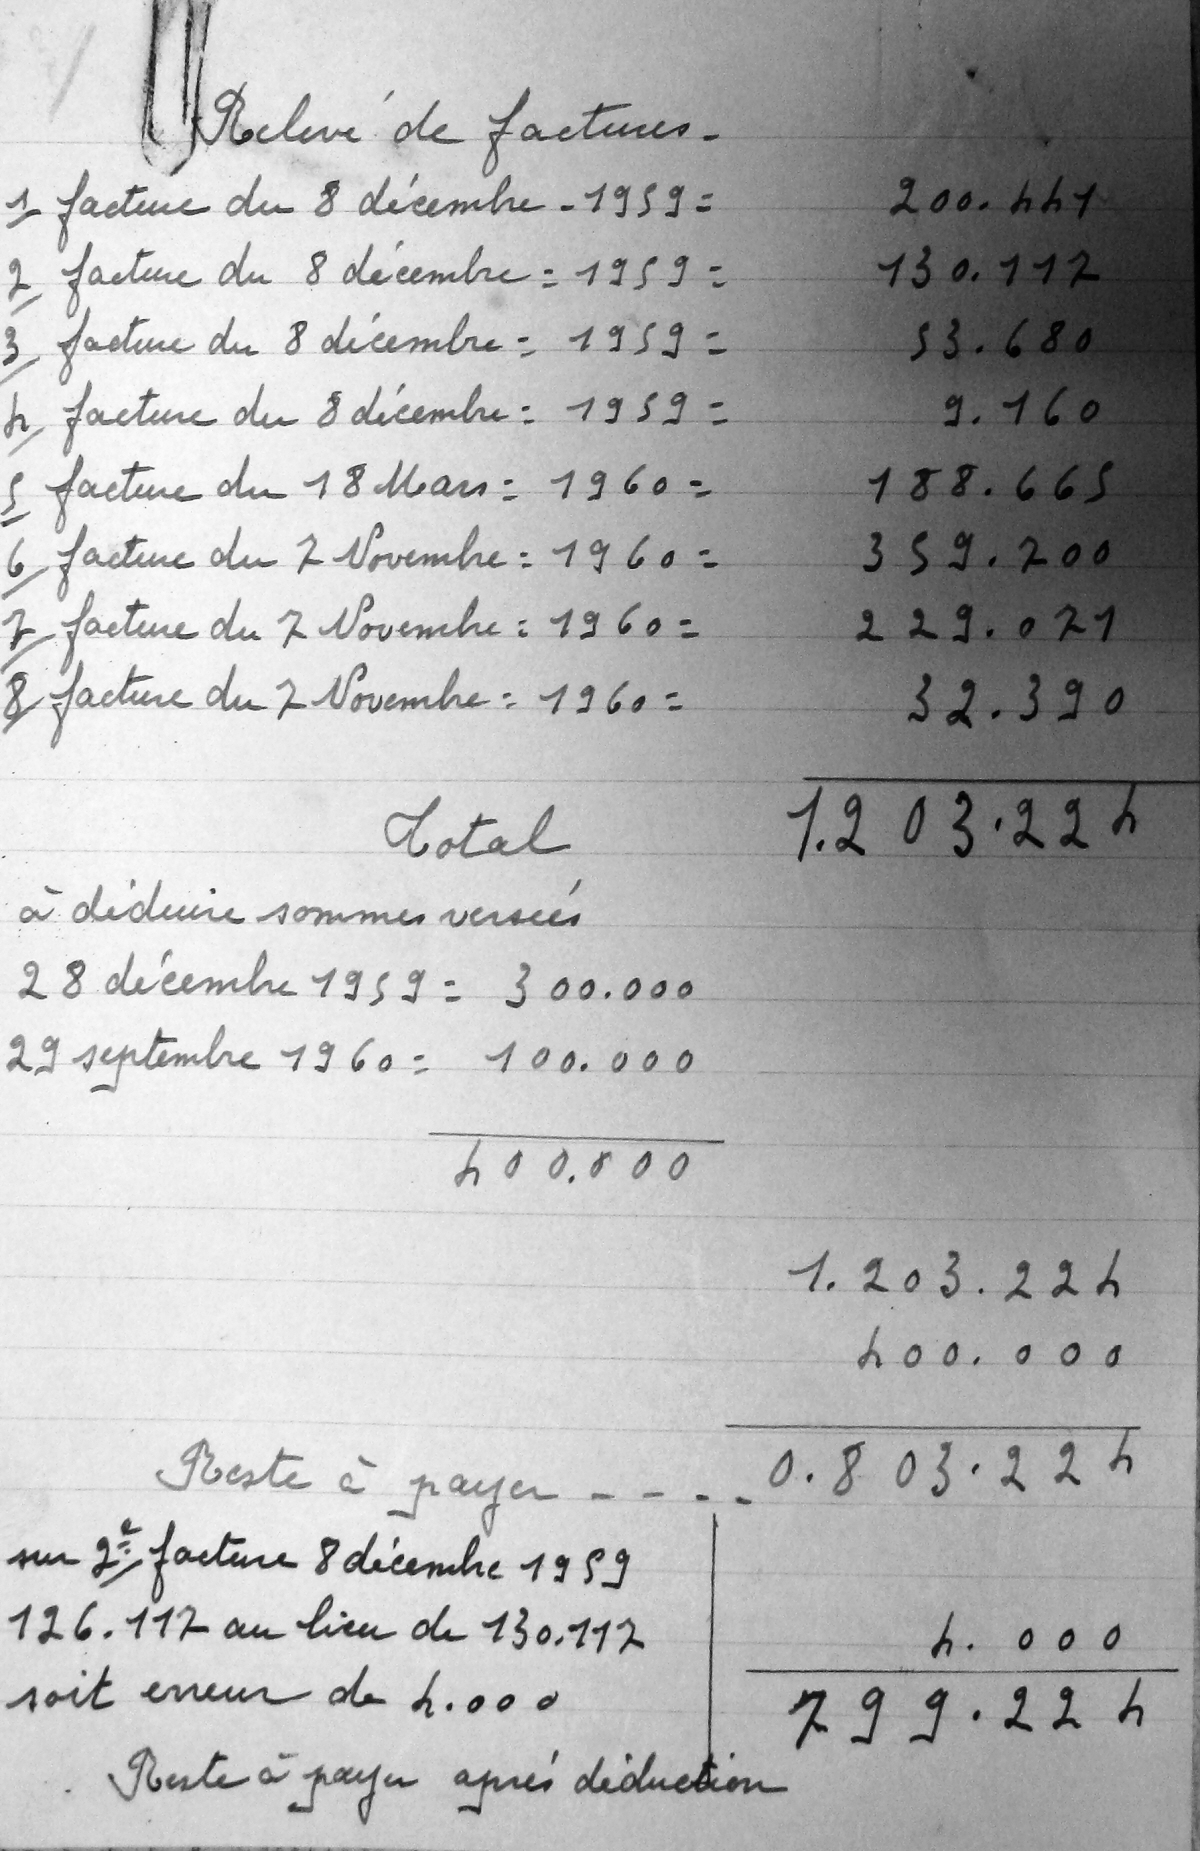 Relevé de factures-
1 facture du 8 décembre - 1959 = 200.441
2 facture du 8 décembre = 1959 = 130.117
3 facture du 8 décembre = 1959 = 53.680
4 facture du 8 décembre = 1959 = 9.160
5 facture du 18 Mars = 1960 = 188.665
6 facture du 7 Novembre = 1960 = 359.700
7 facture du 7 Novembre = 1960 = 229.071
8 facture du 7 Novembre = 1960 = 32.390
Total 1.203.224
à déduire sommes versées
28 décembre 1959 = 300.000
29 septembre 1960 = 100.000
400.000
1.203.224
400.000
Reste à payer - - - - 0.803.224
sur 2e facture 8 décembre 1959
126.117 au lieu de 130.117 4.000
soit erreur de 4.000 799.224
Reste à payer après déduction